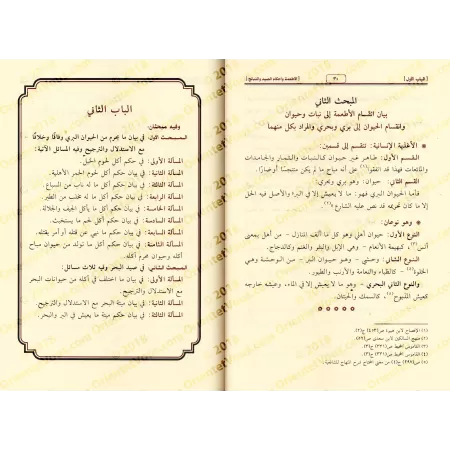 الباب الأول
٣٠
الأطعمة وأحكام الصيد والذبائح
المبحث الثاني
بيان انقسام الأطعمة إلى نبات وحيوان
وانقسام الحيوان إلى بري وبحري والمراد بكل منهما
الأغذية الإنسانية: تنقسم إلى قسمين:
القسم الأول: طاهر غير حيوان كالنباتات والثمار والجامدات
والمائعات فهذا قد اتفقوا على أنه مباح ما لم يكن متنجسًا أو ضارًا.
القسم الثاني: حيوان: وهو بري وبحري.
فأما الحيوان البري فهو: ما لا يعيش إلا في البر والأصل فيه الحل
إلا ما كان تحريمه قد نص عليه الشارع
وهو نوعان:
النوع الأول: حيوان أهلي وهو كل ما ألف المنازل - من أهل بمعنى
أنس، كبهيمة الأنعام - وهي الإبل والبقر والغنم وكالدجاج.
النوع الثاني: وحشي - وهو حيوان البر - من الوحشة وهي
الخلو - كالظباء والنعامة والأرانب والطيور.
والنوع الثاني البحري - وهو ما لا يعيش إلا في الماء، وعيشه خارجه
كعيش المذبوح كالسمك والحيتان.
الباب الثاني
وفيه مبحثان:
المبحث الأول: في بيان ما يحرم من الحيوان البري وفاقًا وخلافًا -
مع الاستدلال والترجيح وفيه المسائل الآتية:
المسألة الأولى: في حكم أكل لحوم الخيل.
المسألة الثانية: في بيان حكم أكل لحوم الحمر الأهلية.
المسألة الثالثة: في بيان حكم أكل ما له ناب من السباع.
المسألة الرابعة: في بيان حكم أكل ما له مخلب من الطير.
المسألة الخامسة: في بيان حكم أكل الجيف والجلالة.
المسألة السادسة: في بيان حكم أكل لحم ما يستخبث.
المسألة السابعة: في بيان حكم ما نهي عن قتله أو أمر بقتله.
المسألة الثامنة: في بيان حكم أكل ما تولد من حيوان مباح
وآخر محرم.
المبحث الثاني: في صيد البحر وفيه ثلاث مسائل:
المسألة الأولى: في بيان ما اختلف في أكله من حيوانات البحر
مع الاستدلال والترجيح.
المسألة الثانية: في بيان ميتة البحر مع الاستدلال والترجيح.
المسألة الثالثة: في بيان حكم ميتة ما يعيش في البر والبحر.